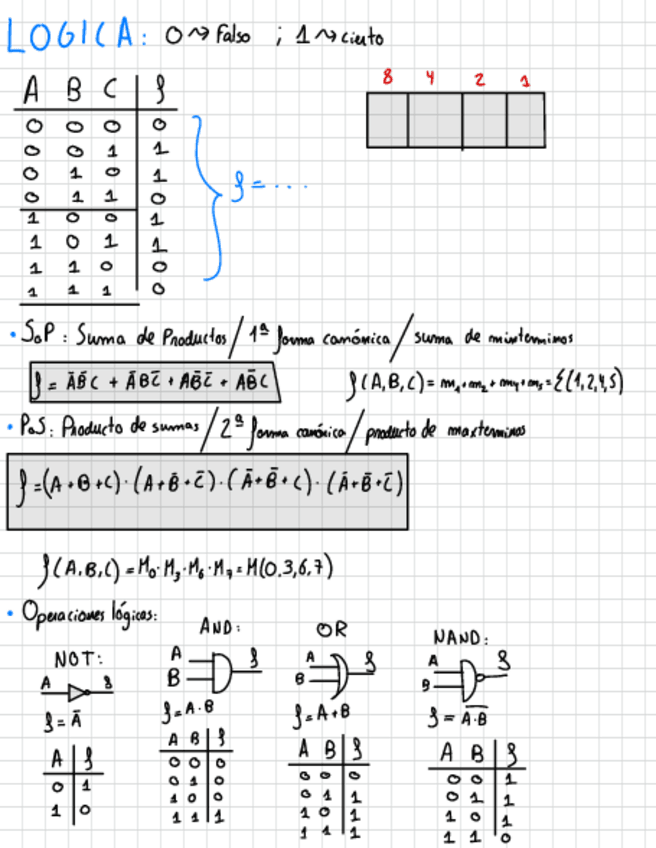 LOGICA: 0 ⤳ Falso ; 1 ⤳ cierto
8 4 2 1
A B C f
0 0 0 0
0 0 1 1
0 1 0 1
0 1 1 0
1 0 0 1
1 0 1 1
1 1 0 0
1 1 1 0
f = ...
• SoP : Suma de Productos / 1ª forma canónica / suma de minterminos
f = ĀB̄C + ĀBC̄ + AB̄C̄ + AB̄C
f(A,B,C) = m₁+m₂+m₄+m₅ = Σ(1,2,4,5)
• PoS: Producto de sumas / 2ª forma canónica / producto de maxterminos
f = (A+B+C)·(A+B̄+C̄)·(Ā+B̄+C)·(Ā+B̄+C̄)
f(A,B,C) = M₀·M₃·M₆·M₇ = M(0,3,6,7)
• Operaciones lógicas:
NOT:
A f
f = Ā
A f
0 1
1 0
AND:
A
B
f
f = A·B
A B f
0 0 0
0 1 0
1 0 0
1 1 1
OR
A
B
f
f = A+B
A B f
0 0 0
0 1 1
1 0 1
1 1 1
NAND:
A
B
f
f = A̅·̅B̅
A B f
0 0 1
0 1 1
1 0 1
1 1 0